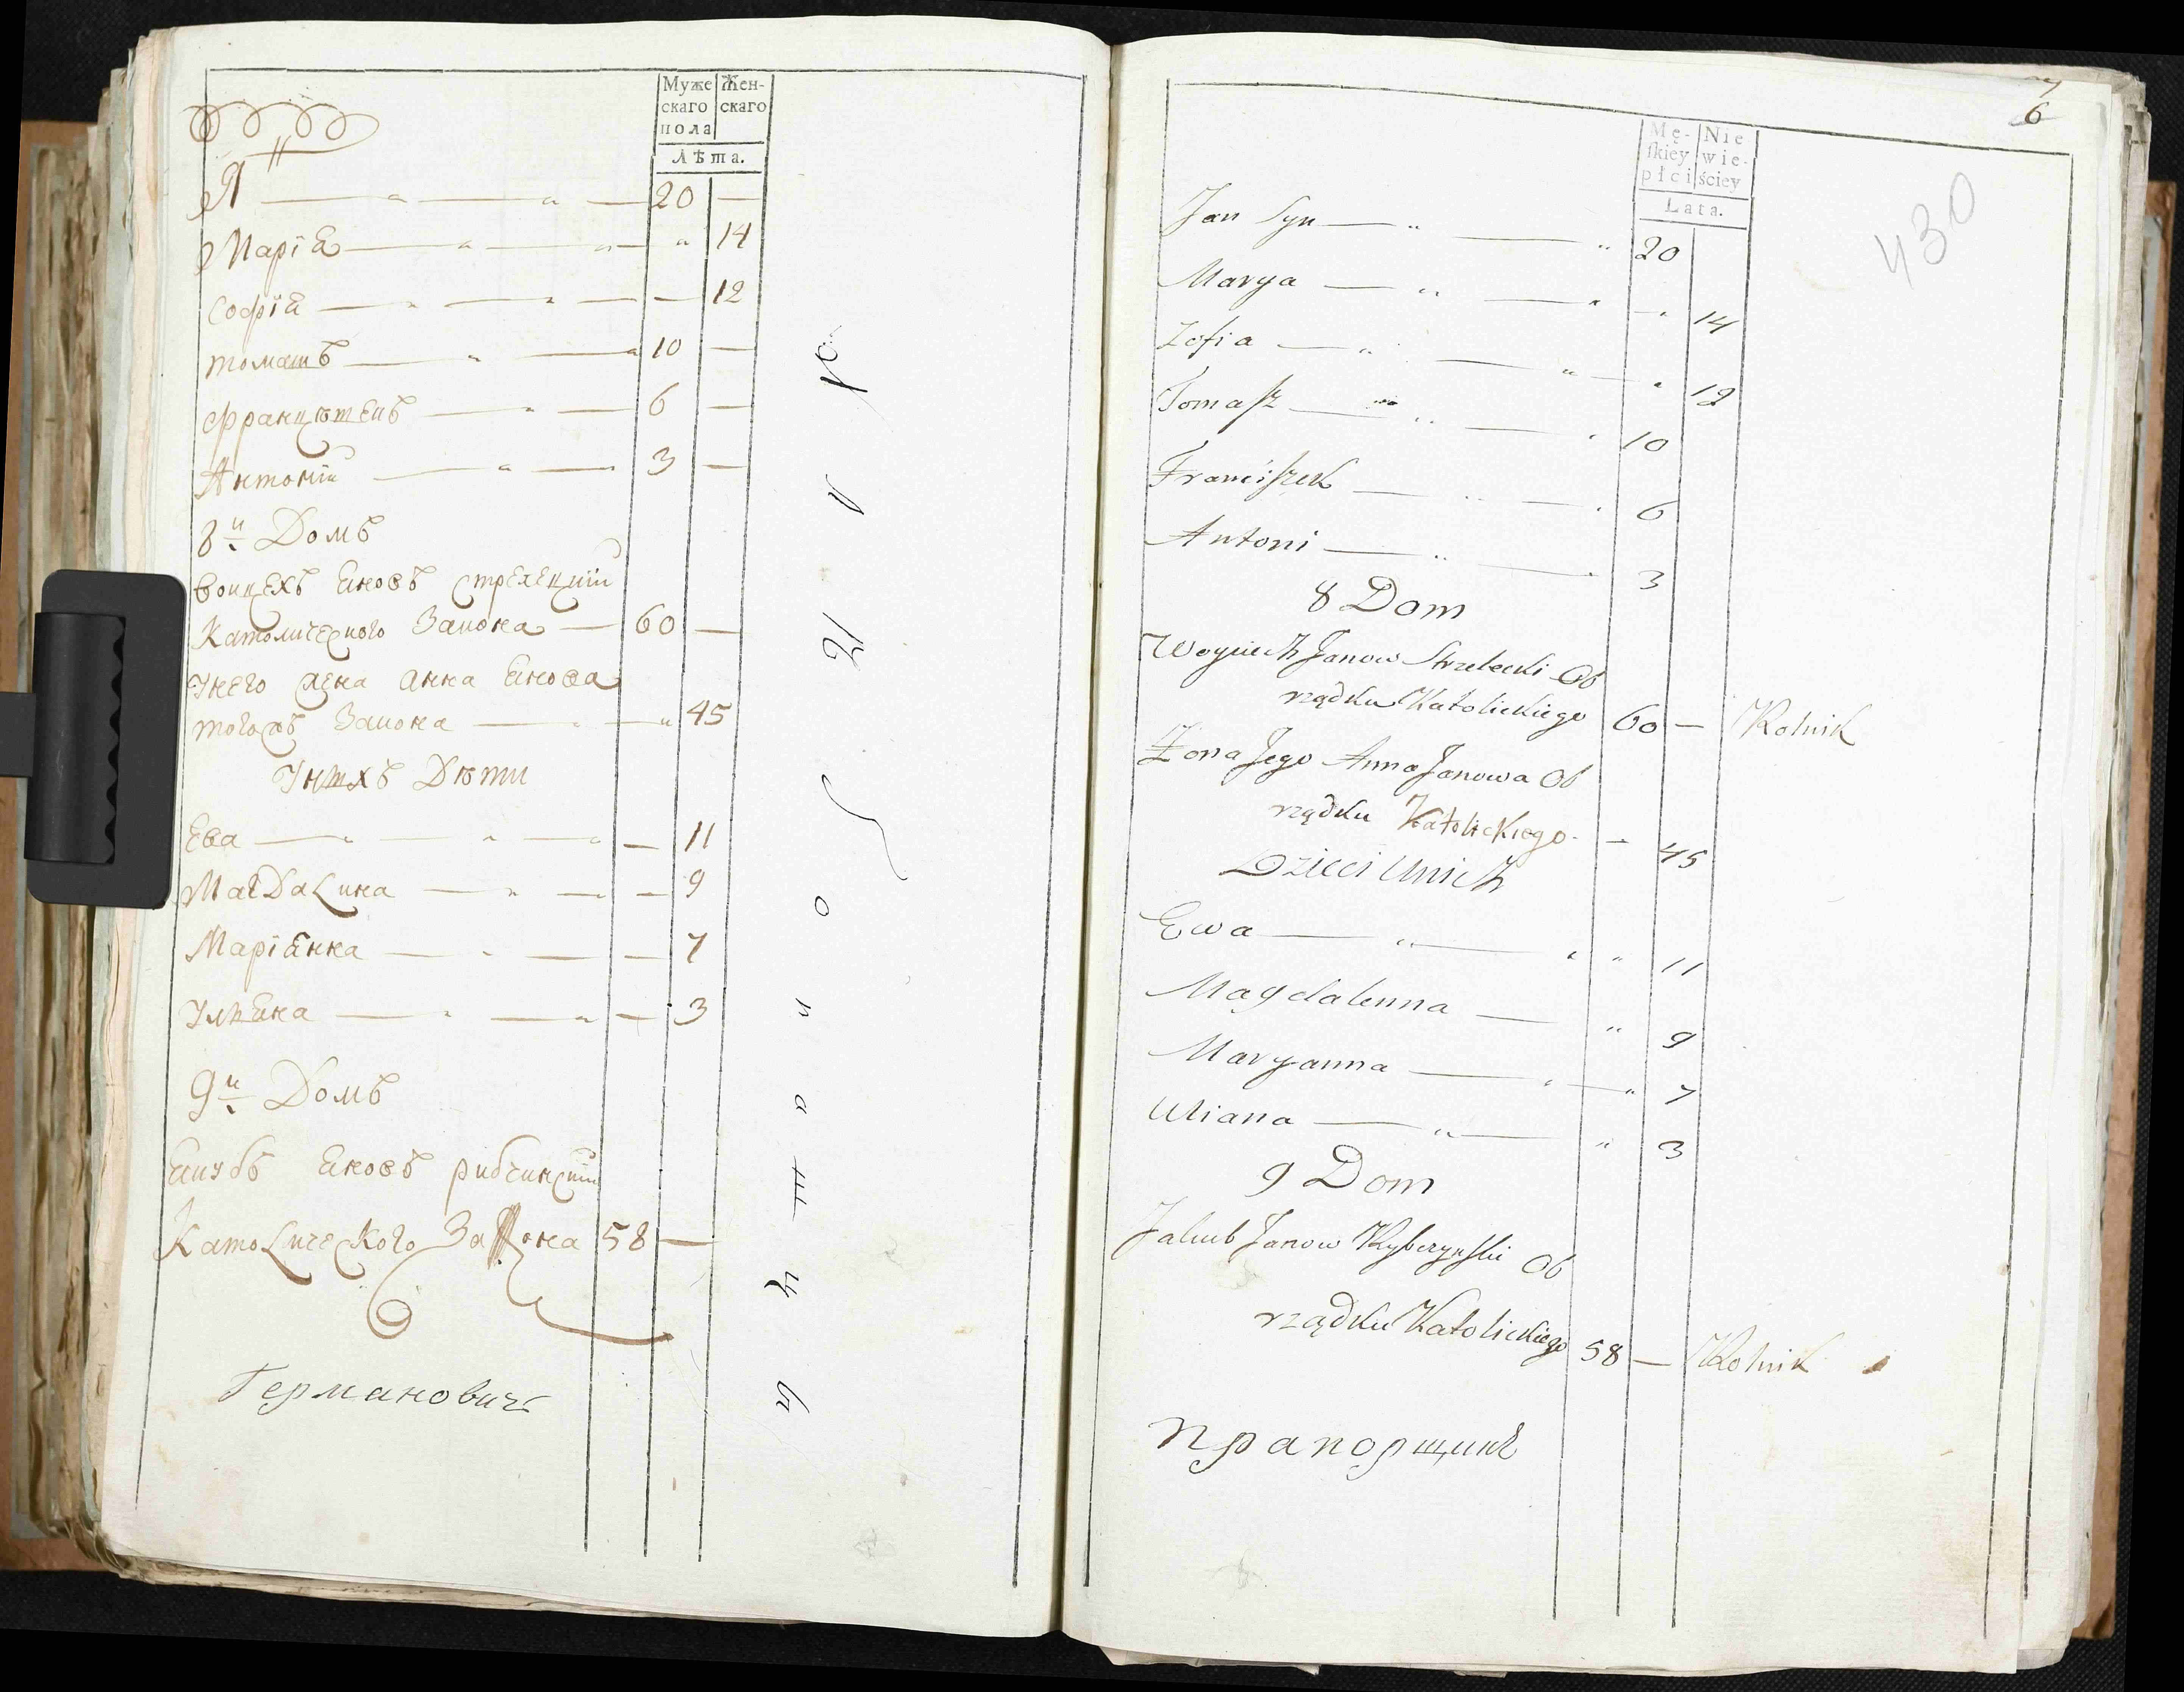 Муже Жен-
скаго скаго
пола
Лѣта.
Я 20 —
Марія " 14
Софія — 12
томашъ 10 —
францѣшекъ 6 —
Антоній 3 —
8й Домъ
воицехъ яновъ стрелецкій
Католического Закона — 60 —
Унего жена анна янова
тогожъ Закона " 45
Унихъ Дѣти
Ева — 11
Магдалина — 9
Маріянна — 7
Улияна — 3
9й Домъ
якубъ яновъ рибчинскій
Католического Закона 58 —
Германовичъ
7
6
430
Mę- Nie
skiey wie-
płci ściey
Lata.
Jan Syn 20
Marya " 14
Zofia " 12
Tomasz 10
Franciszek 6
Antoni 3
8 Dom
Woyciech Janow Strzelecki Ob
rządku Katolickiego 60 — Rolnik
Żona Jego Anna Janowa Ob
rządku Katolickiego — 45
Dzieci Unich
Ewa " 11
Magdalenna " 9
Maryanna " 7
Uliana " 3
9 Dom
Jakub Janow Rybczyński Ob
rządku Katolickiego 58 — Rolnik
прапорщикъ